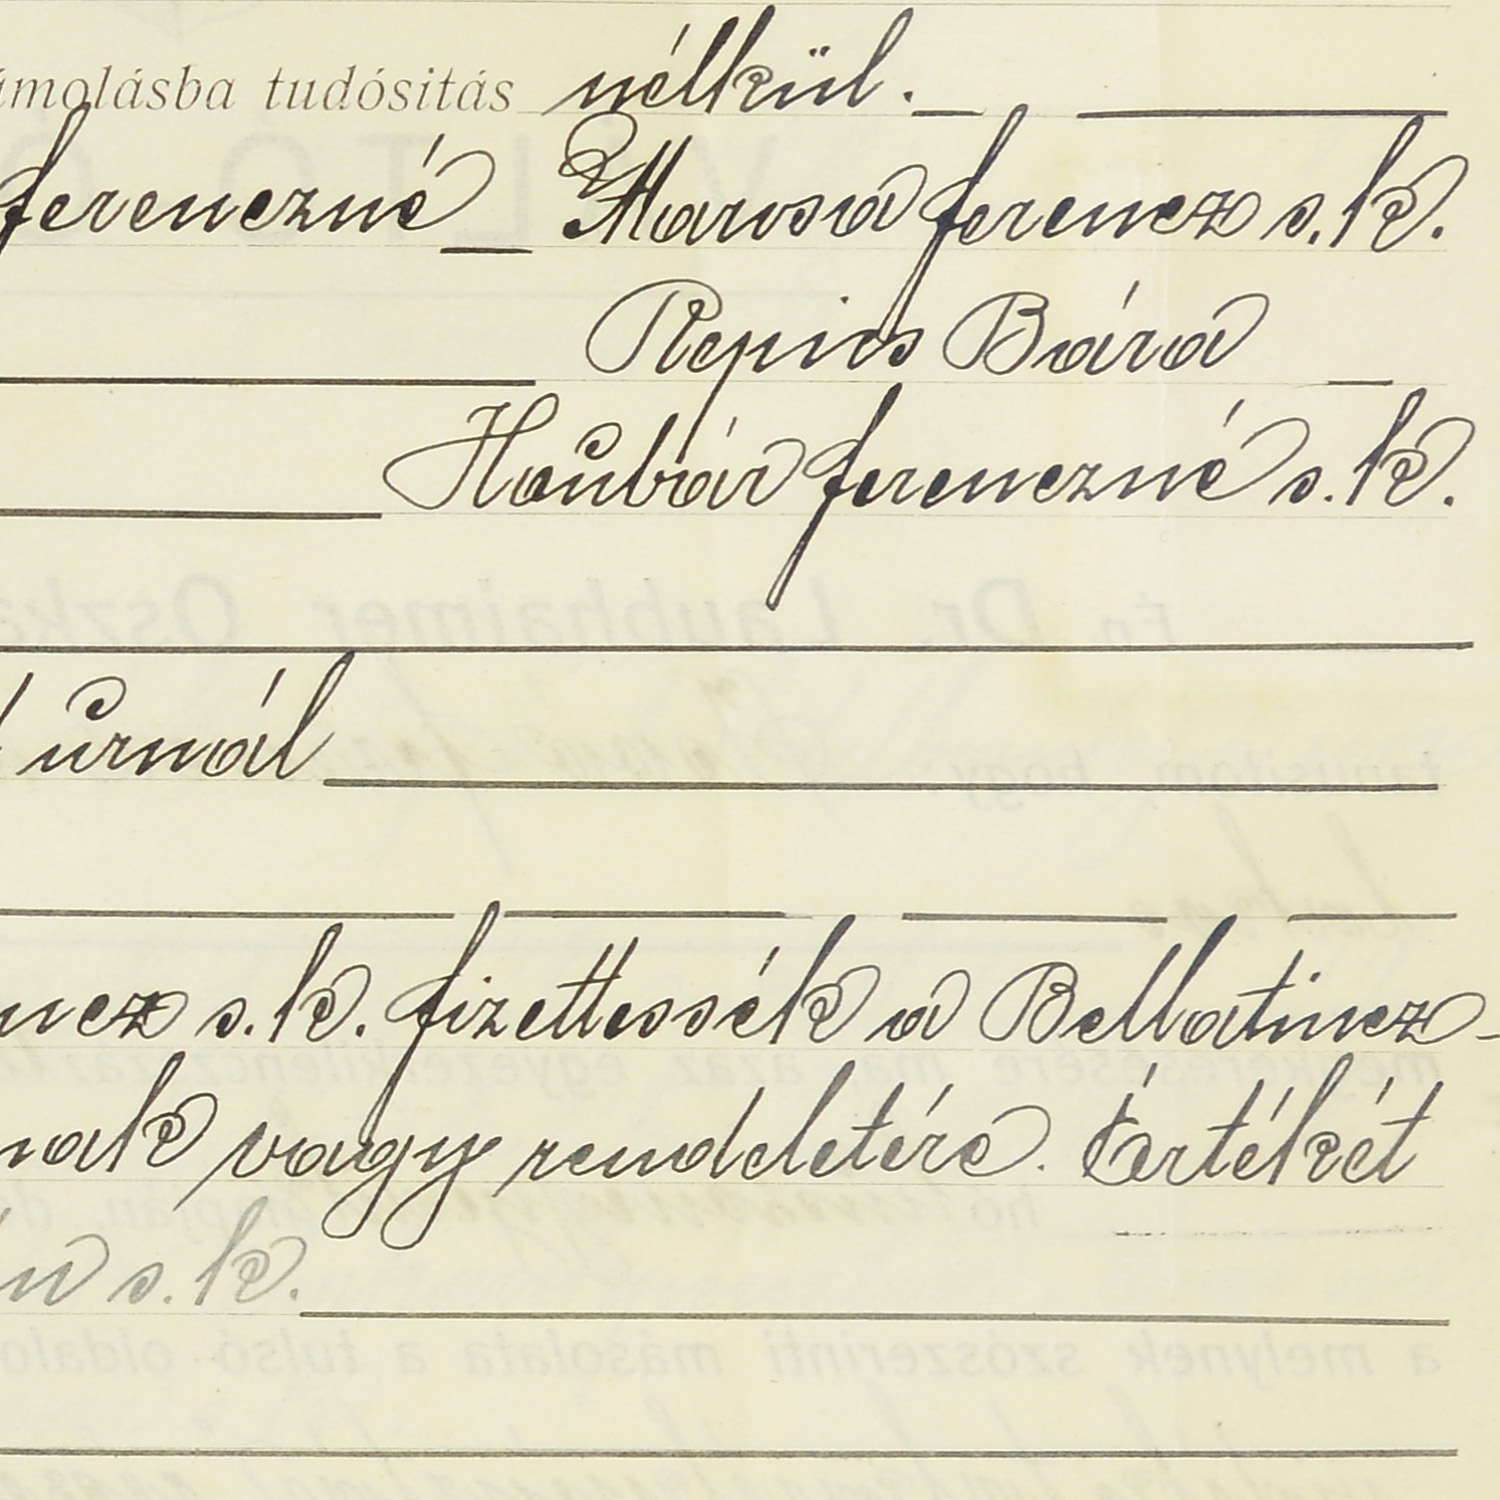 ámolásba tudósitás nélkül.
Ferenczné Marosa Ferencz s.k.
Repics Bára
Haubár Ferenczné s.k.
úrnál
ncz s.k. fizettessék a Bellatincz-
nak vagy rendeletére. Értékét
n s.k.